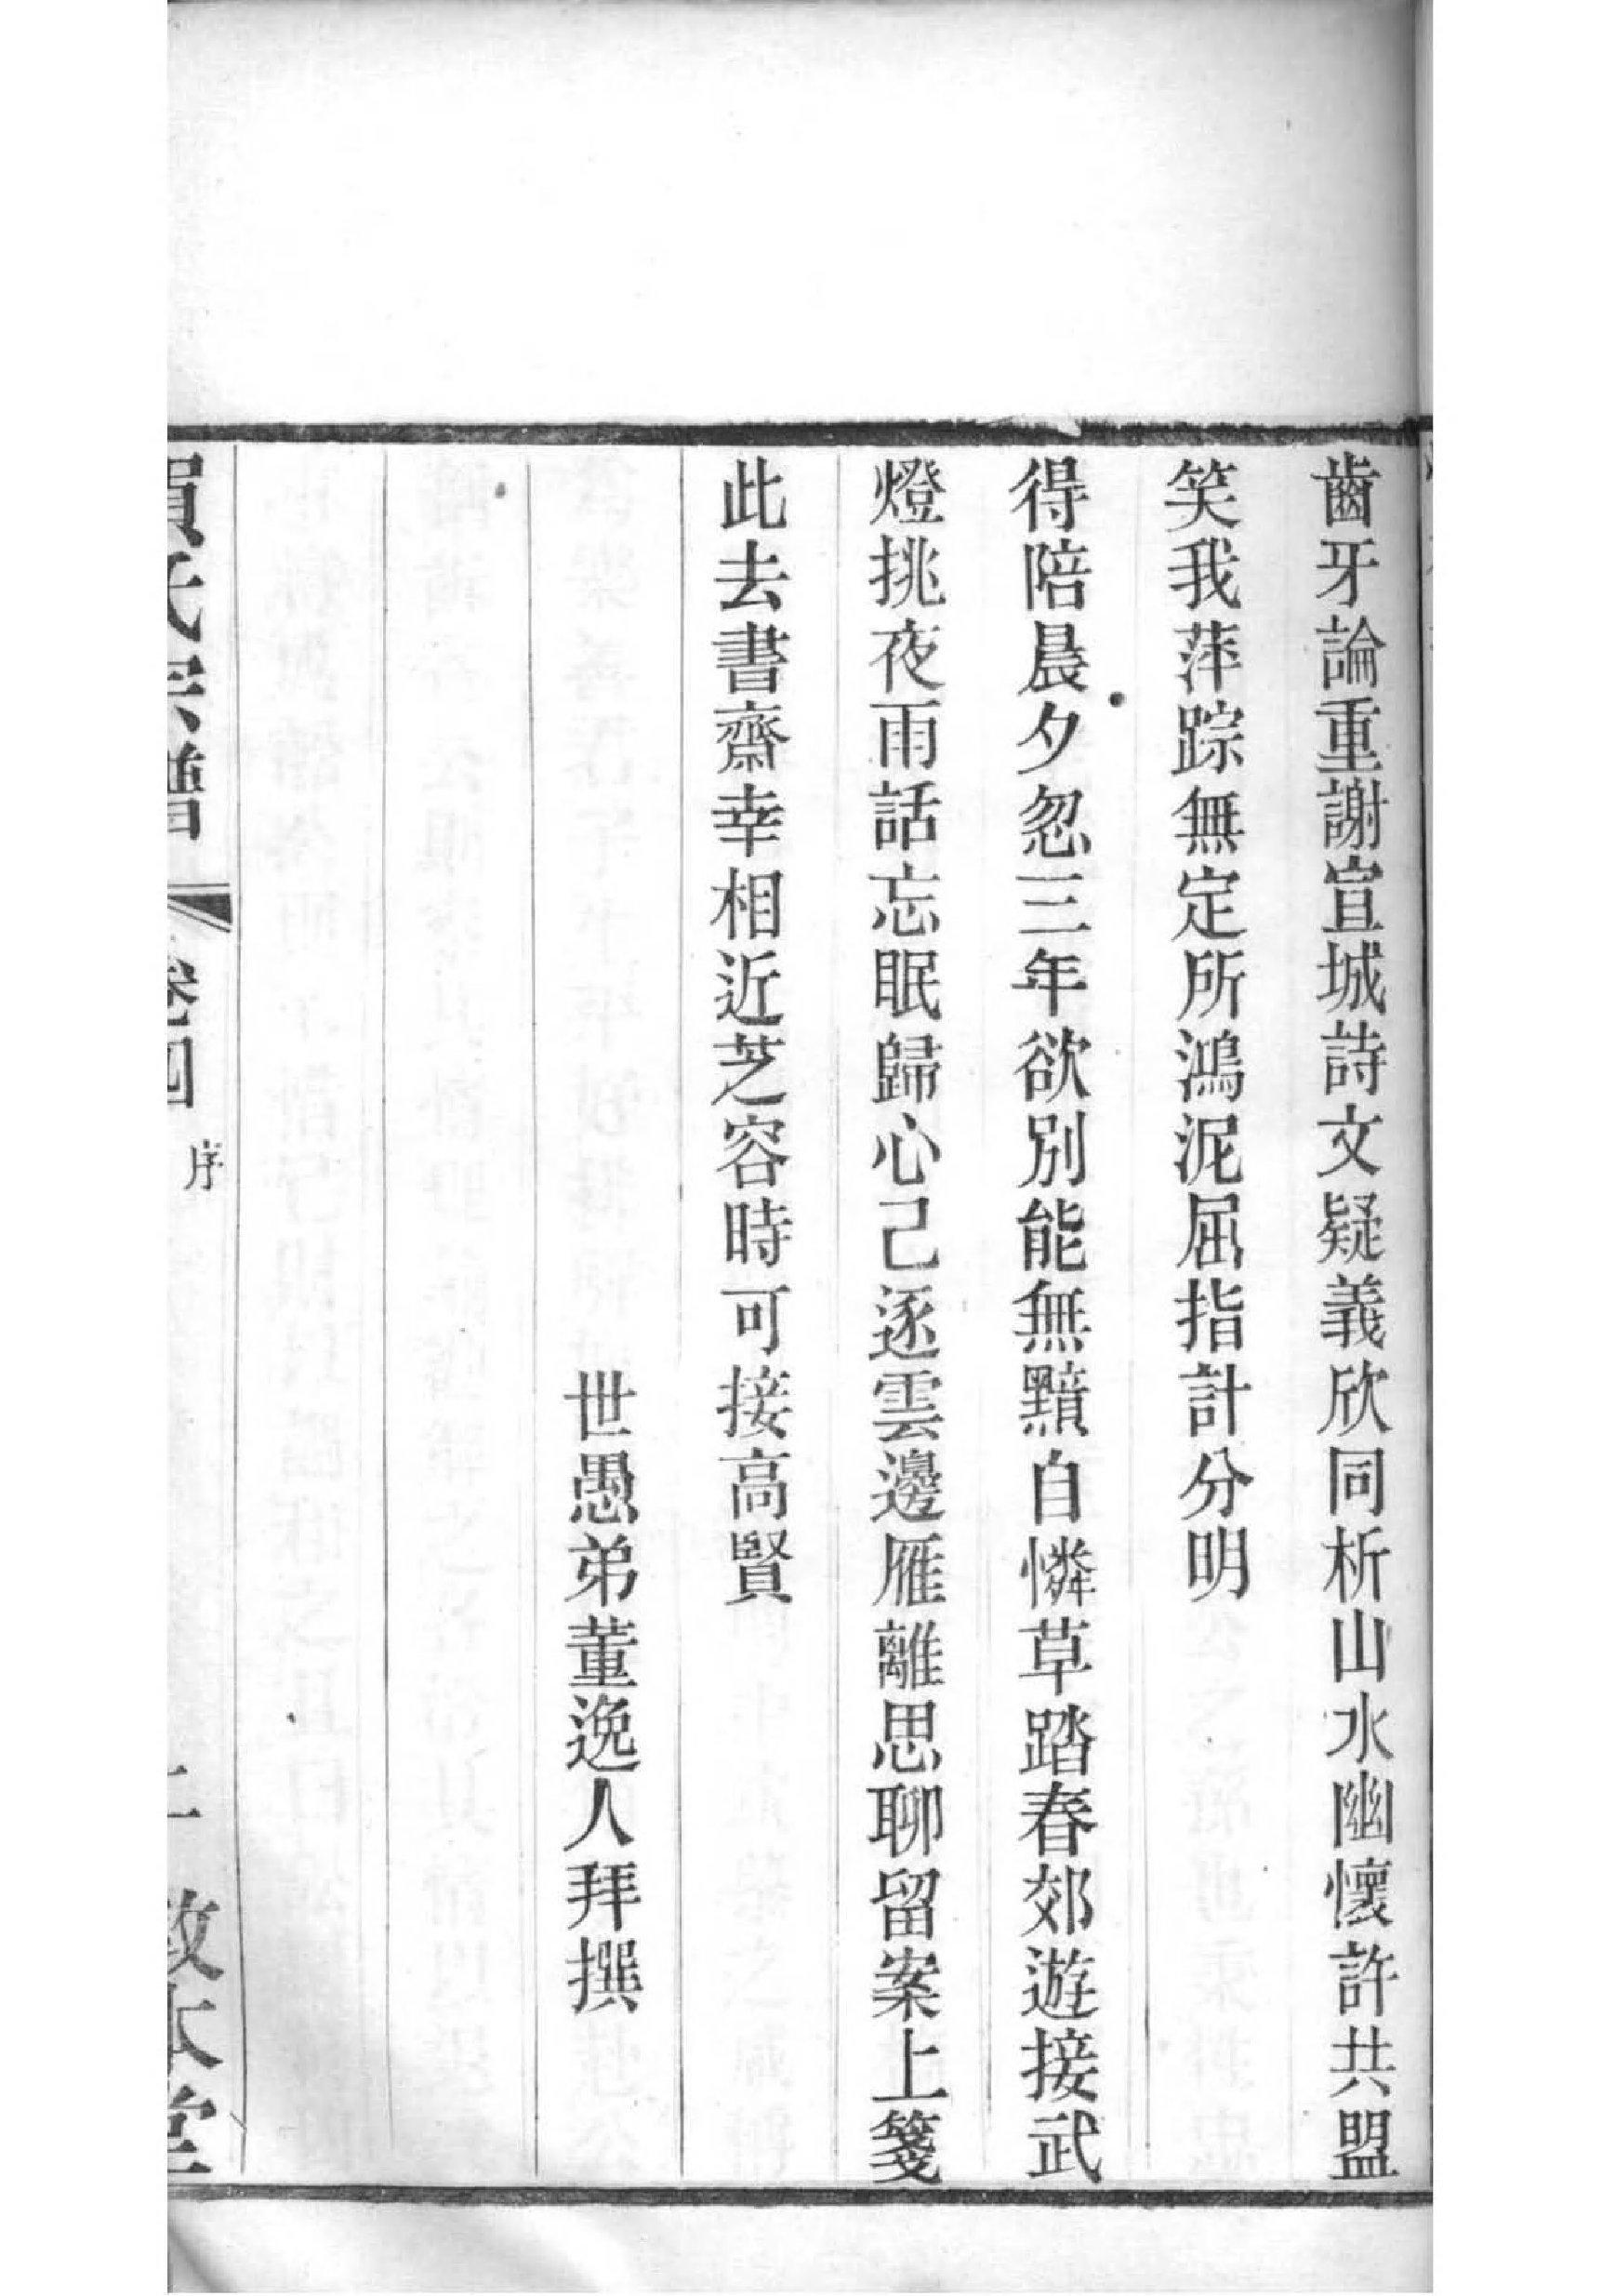 齒牙論重謝宣城詩文疑義欣同析山水幽懷許共盟
笑我萍踪無定所鴻泥屈指計分明
得陪晨夕忽三年欲別能無黯自憐草踏春郊遊接武
燈挑夜雨話忘眠歸心己逐雲邊雁離思聊留案上箋
此去書齋幸相近芝容時可接高賢
世愚弟董逸人拜撰
氏宗譜
卷四
序
敬本堂